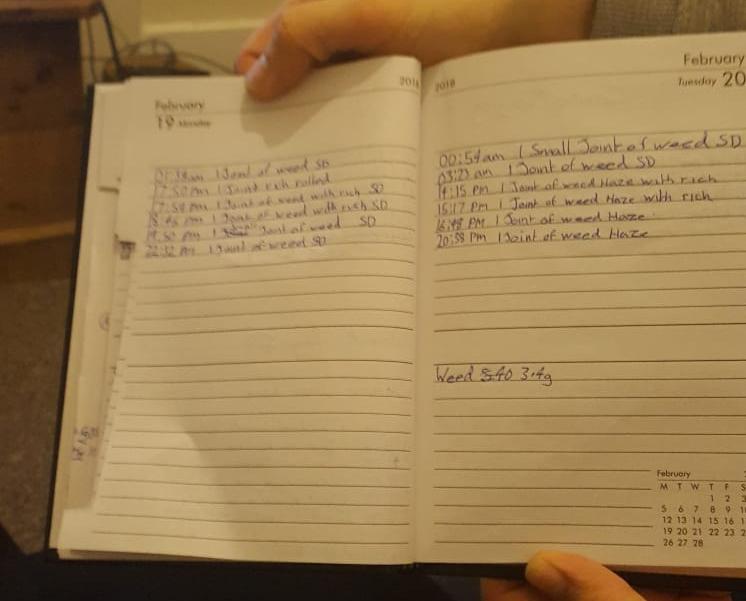 February
19 Monday
2018
am 1 Joint of weed SD
17:50 pm 1 Joint rich rolled
17:58 pm 1 Joint of weed with rich SD
18:45 pm 1 Joint of weed with rich SD
19:50 pm 1 Joint of weed SD
22:32 pm 1 Joint of weed SD
2018
February
Tuesday 20
00:54am 1 Small Joint of weed SD
03:23 am 1 Joint of weed SD
14:15 pm 1 Joint of weed Haze with rich
15:17 pm 1 Joint of weed Haze with rich
16:48 PM 1 Joint of weed Haze
20:58 Pm 1 Joint of weed Haze
Weed £40 3.4g
February
M T W T F S
1 2 3
5 6 7 8 9
12 13 14 15 16
19 20 21 22 23
26 27 28